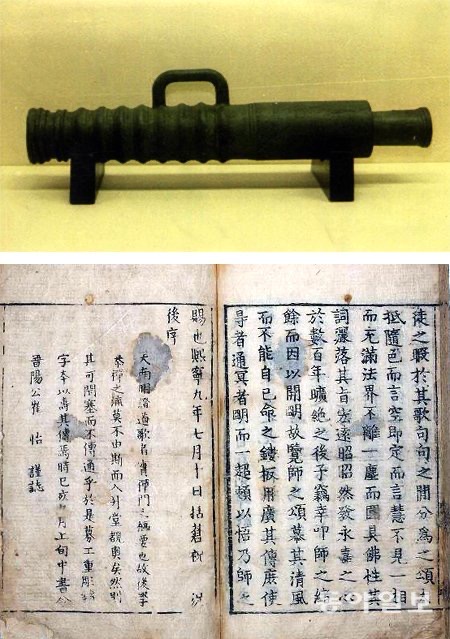 徒之暇於其歌句句之間分爲之頌
抵隨色而言空即定而言慧不見一相
而充滿法界不離一塵而圓具佛性其
詞灑落其旨遠昭昭然發永嘉之心
於數百年曠絶之後予竊幸叩師之緒
餘而因以開明故寶師之頌慕其清風
而不能自已命之鏤板用廣其傳庶使
尋者通冥者明而一超頓以悟乃師之
賜也熙寧九年七月十日括蒼祝 況
後序
夫南明證道歌者實禪門之樞要也故後學
叅禪之流莫不由斯而入升堂覩奧矣然則
其可閉塞而不傳通乎於是募工重彫鑄
字本以壽其傳焉時己亥九月上旬中書令
晉陽公崔 怡 謹誌
동아일보